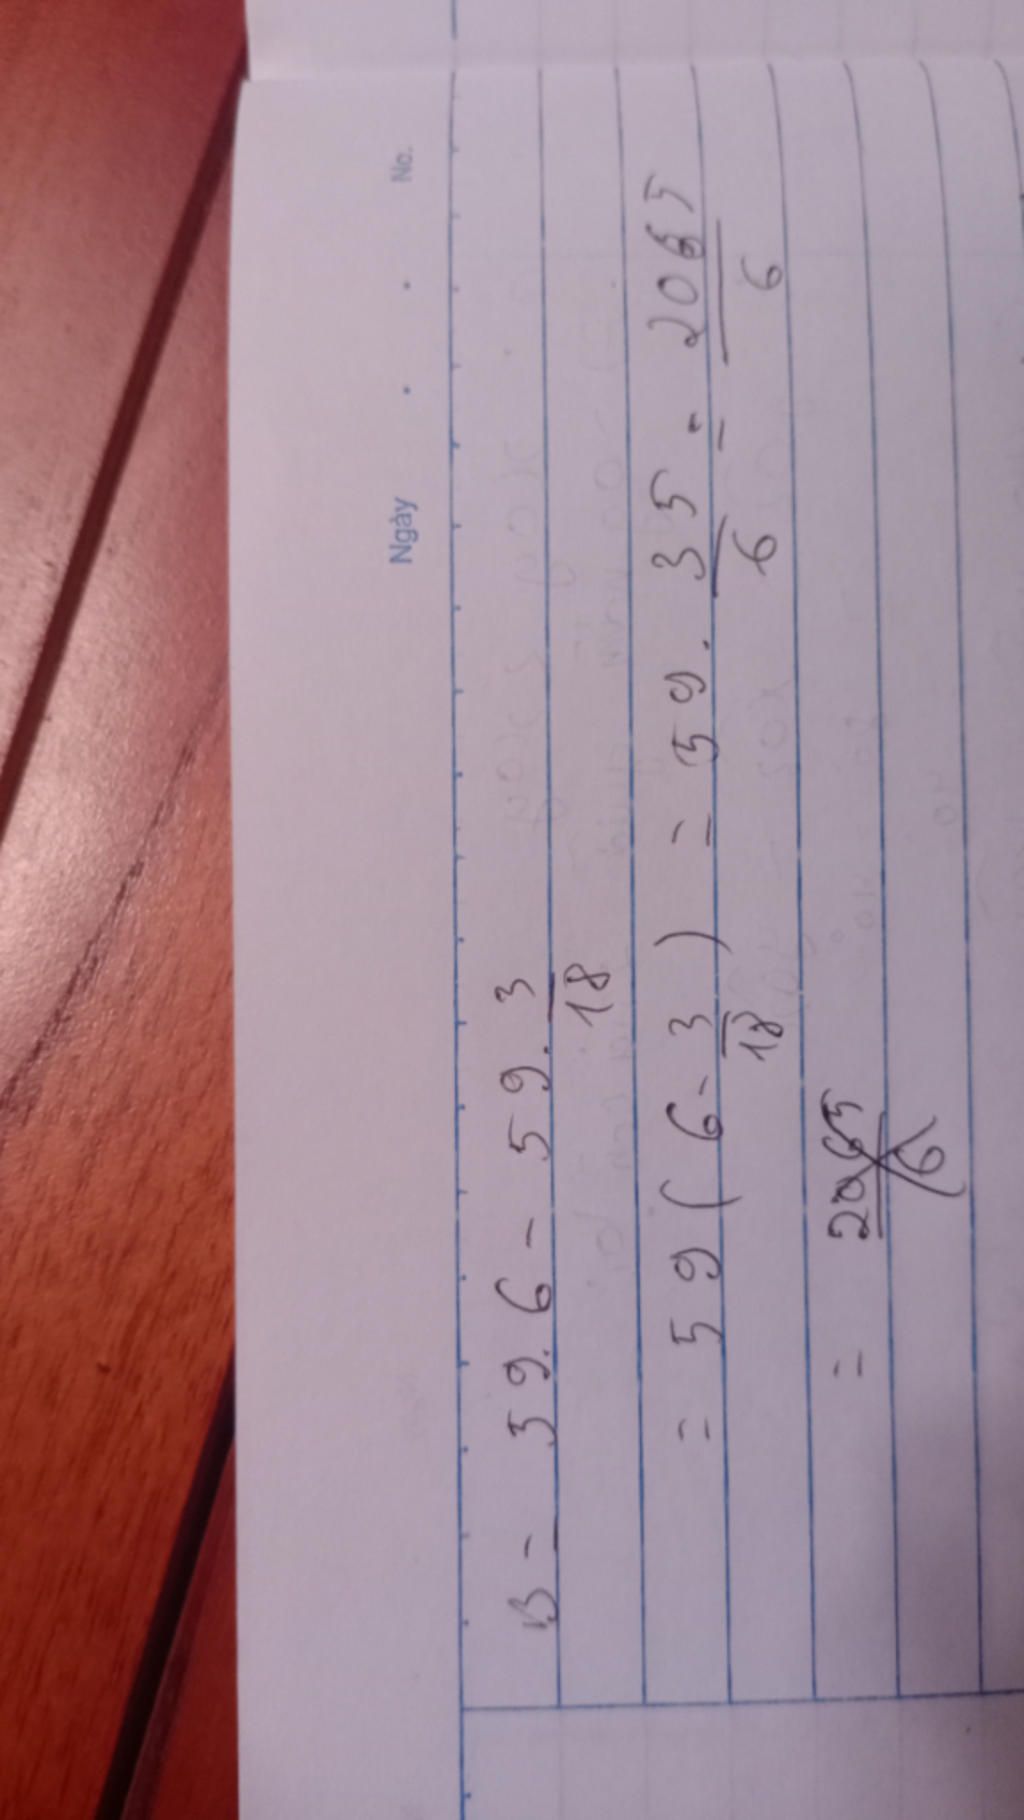 Ngày . . No.
B = 59.6 - 59.3/18
= 59(6-3/18) = 59.35/6 = 2065/6
= 2065/6